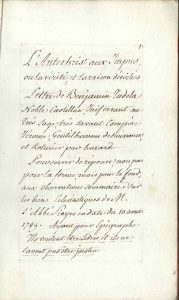 L'Antechrist aux Impies
ou la verité et la raison dévoilées
Lettre de Benjamin Tudela
Noble Castillan Juif errant au
très Sage très savant Compère
Gentilhomme de Naissance
et Roturier par hazard
Pour servir de réponse, non pas
pour la forme, mais pour le fond,
aux observations sommaires Sur
les biens Eclesiastiques de M.
L'Abbé Sieyes en date du 10 aout
1789. Ayant pour Epigraphe
Ils veulent être libres et ils ne
savent pas être justes